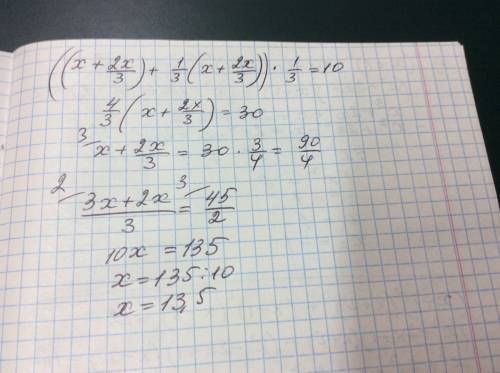 ((x + 2x/3) + 1/3 (x + 2x/3)) · 1/3 = 10
4/3 (x + 2x/3) = 30
3/ x + 2x/3 = 30 · 3/4 = 90/4
2/ (3x + 2x)/3 = 3/ 45/2
10x = 135
x = 135 : 10
x = 13,5